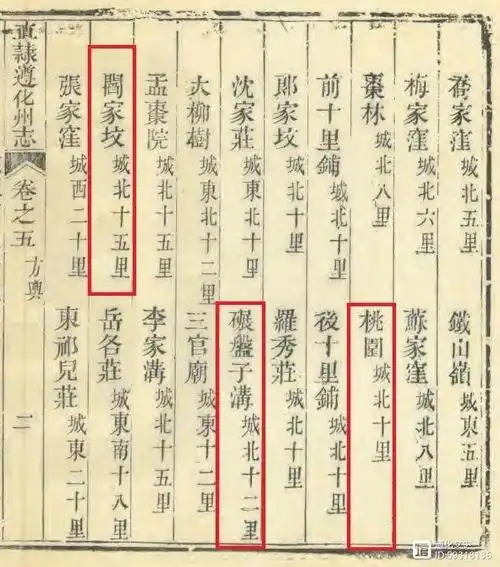 喬家窪城北五里 鐵山嶺城東五里
梅家窪城北六里 蘇家窪城北八里
棗林城北八里 桃園城北十里
前十里鋪城北十里 後十里鋪城北十里
郎家坟城北十里 羅秀莊城北十里
沈家莊城東北十里 碾盤子溝城北十二里
大柳樹城東北十二里 三官廟城東十二里
孟棗院城北十五里 李家溝城北十五里
閻家坟城北十五里 岳各莊城東南十八里
張家窪城西二十里 東祁兒莊城東二十里
直隸遵化州志 卷之五 方輿 二